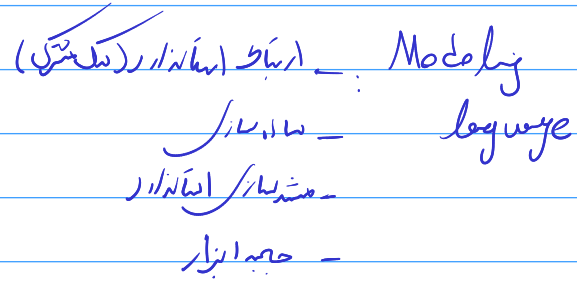 Modeling language : - ارتباط استاندارد (درک مشترک)
- ساده سازی
- مستندسازی استاندارد
- جعبه ابزار